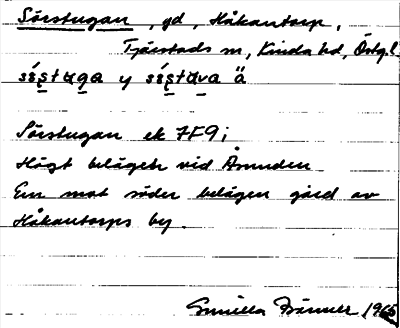 Sörstugan, gd, Håkantorp,
Tjärstads sn, Kinda hd, Östg.l.
sɛ́s̱tɑga y sɛ́s̱tɑva ä
Sörstugan ek 7F9;
Högt beläget vid Åsunden
En mot söder belägen gård av
Håkantorps by.
Gunilla 1965